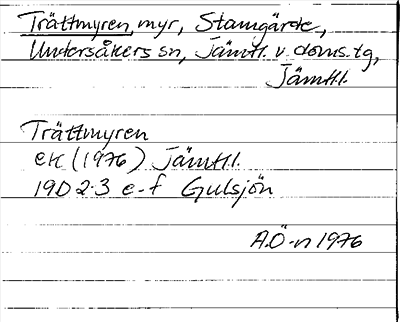 Trättmyren, myr, Stamgärde,
Undersåkers sn, Jämtl. v. doms. tg,
Jämtl.
Trättmyren
ek (1976) Jämtl.
19D 2-3 e-f Gulsjön
A.Ö-n 1976